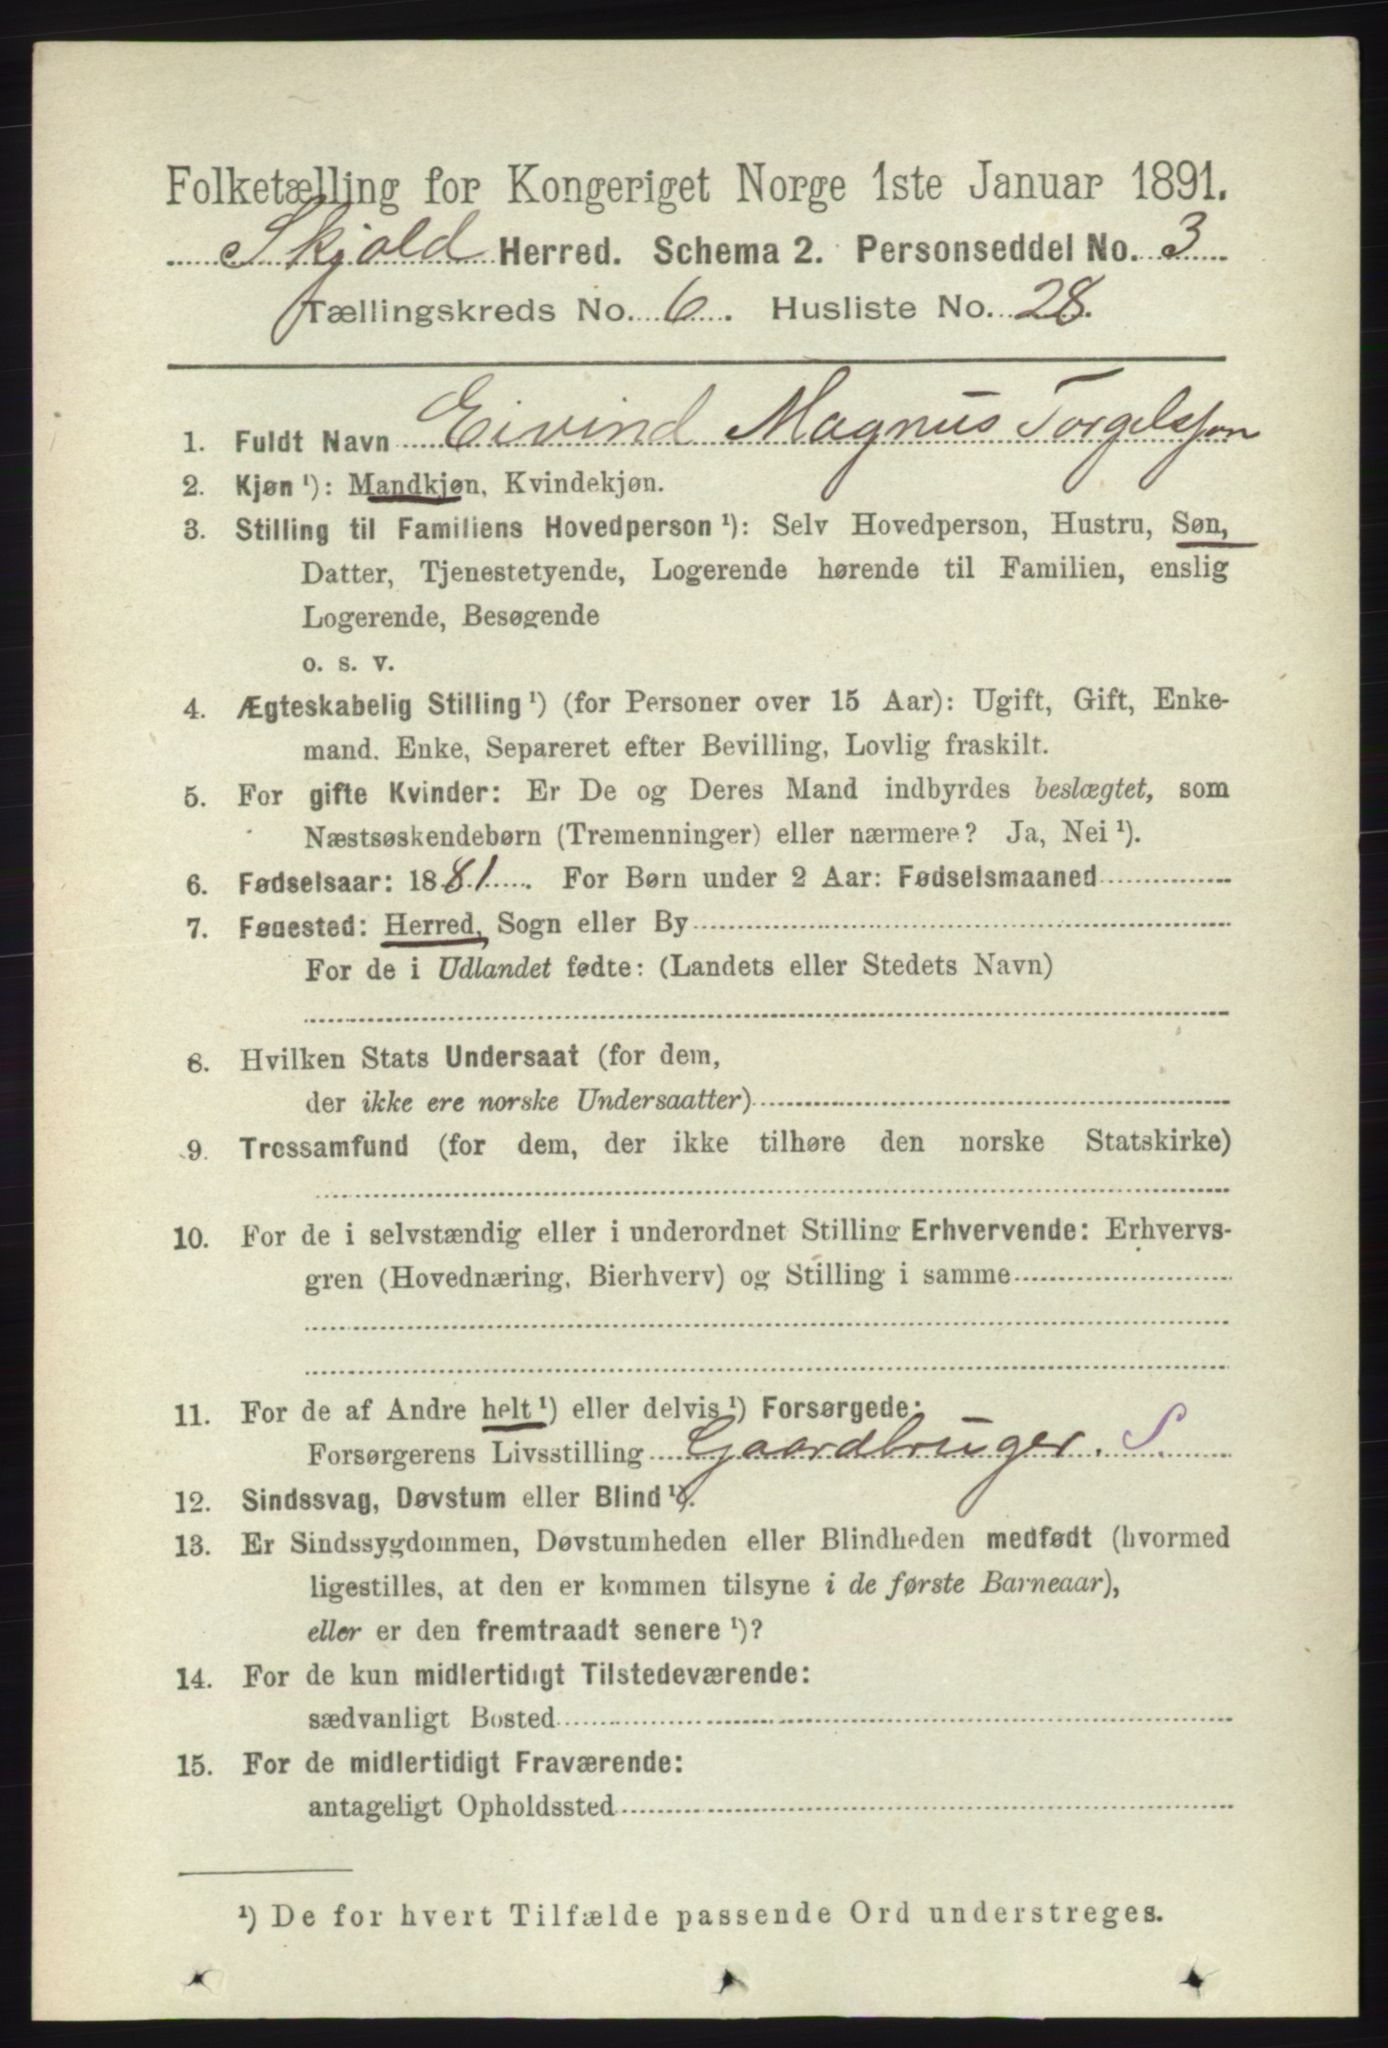 Folketælling for Kongeriget Norge 1ste Januar 1891.
Skjold Herred. Schema 2. Personseddel No. 3
Tællingskreds No. 6. Husliste No. 28.
1. Fuldt Navn Eivind Magnus Torgelssøn
2. Kjøn ¹): Mandkjøn, Kvindekjøn.
3. Stilling til Familiens Hovedperson ¹): Selv Hovedperson, Hustru, Søn,
Datter, Tjenestetyende, Logerende hørende til Familien, enslig
Logerende, Besøgende
o. s. v.
4. Ægteskabelig Stilling ¹) (for Personer over 15 Aar): Ugift, Gift, Enke-
mand. Enke, Separeret efter Bevilling, Lovlig fraskilt.
5. For gifte Kvinder: Er De og Deres Mand indbyrdes beslægtet, som
Næstsøskendebørn (Tremenninger) eller nærmere? Ja, Nei ¹).
6. Fødselsaar: 1881. For Børn under 2 Aar: Fødselsmaaned
7. Fødested: Herred, Sogn eller By
For de i Udlandet fødte: (Landets eller Stedets Navn)
8. Hvilken Stats Undersaat (for dem,
der ikke ere norske Undersaatter)
9. Trossamfund (for dem, der ikke tilhøre den norske Statskirke)
10. For de i selvstændig eller i underordnet Stilling Erhvervende: Erhvervs-
gren (Hovednæring, Bierhverv) og Stilling i samme
11. For de af Andre helt ¹) eller delvis ¹) Forsørgede:
Forsørgerens Livsstilling Gaardbruger. S.
12. Sindssvag, Døvstum eller Blind ¹).
13. Er Sindssygdommen, Døvstumheden eller Blindheden medfødt (hvormed
ligestilles, at den er kommen tilsyne i de første Barneaar),
eller er den fremtraadt senere ¹)?
14. For de kun midlertidigt Tilstedeværende:
sædvanligt Bosted
15. For de midlertidigt Fraværende:
antageligt Opholdssted
¹) De for hvert Tilfælde passende Ord understreges.